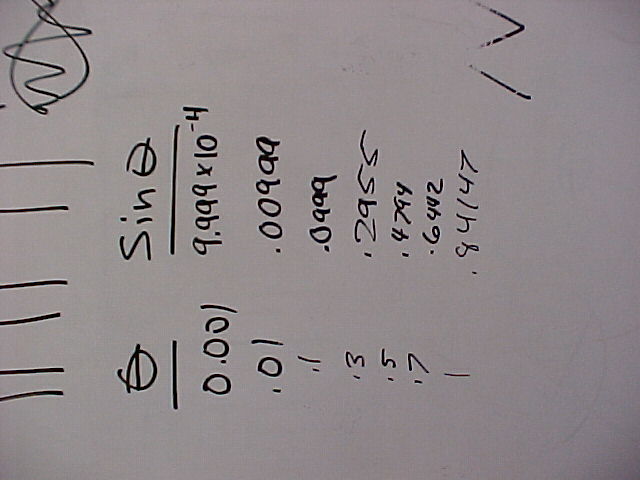 θ Sin θ
0.001 9.999 x 10⁻⁴
.01 .00999
.1 .0999
.3 .2955
.5 .4794
.7 .6442
1 .84147